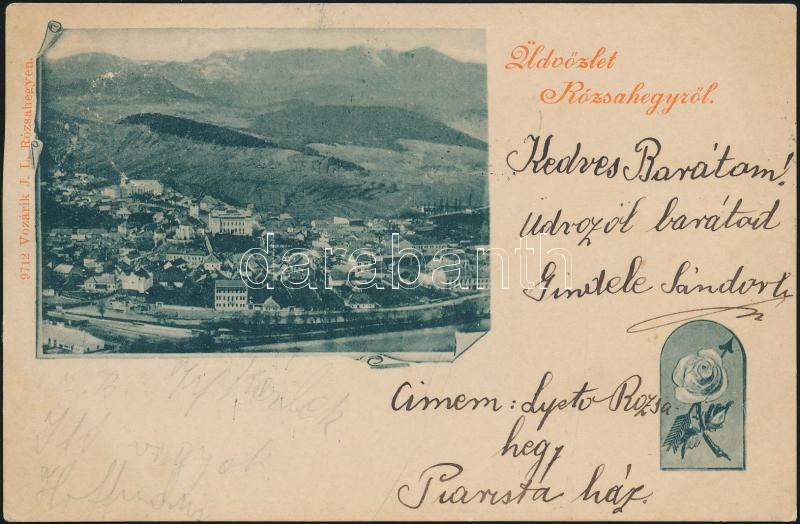 Üdvözlet
Rózsahegyről.
9712 Vozárik J. L. Rózsahegyen.
Kedves Barátom!
Üdvözöl barátod
Gindele Sándor
darabanth
Cimem: Lypto Rozsa-
hegy
Piarista ház.